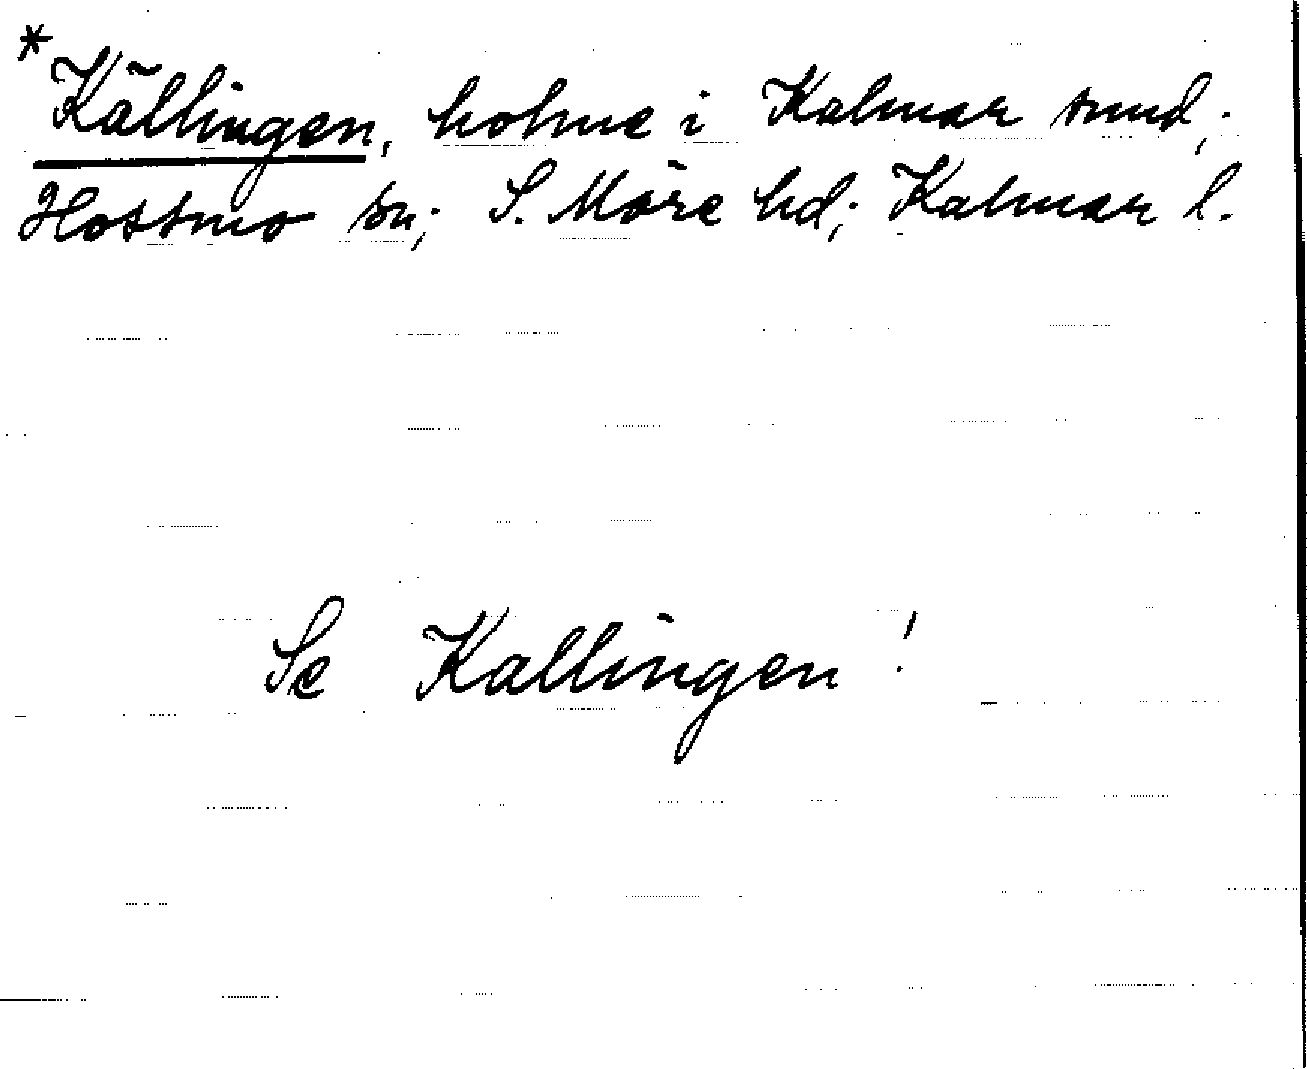 *Källingen, holme i Kalmar sund,
Hossmo sn; S. Möre hd; Kalmar l.
Se Kallingen!